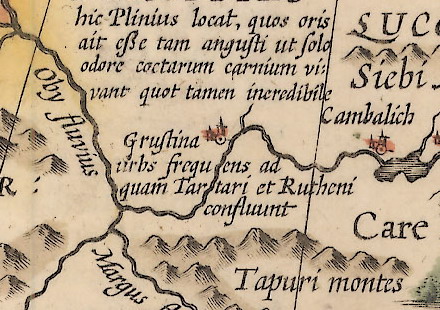 hic Plinius locat, quos oris
ait eſse tam anguſti ut ſolo
odore coctarum carnium vi:
vant quot tamen incredibile
LUCO
Siebi
Cambalich
Oby fluvius
Gruſtina
urbs frequens ad
quam Tartari et Rutheni
confluunt
R :
Care
Margus
Tapuri montes